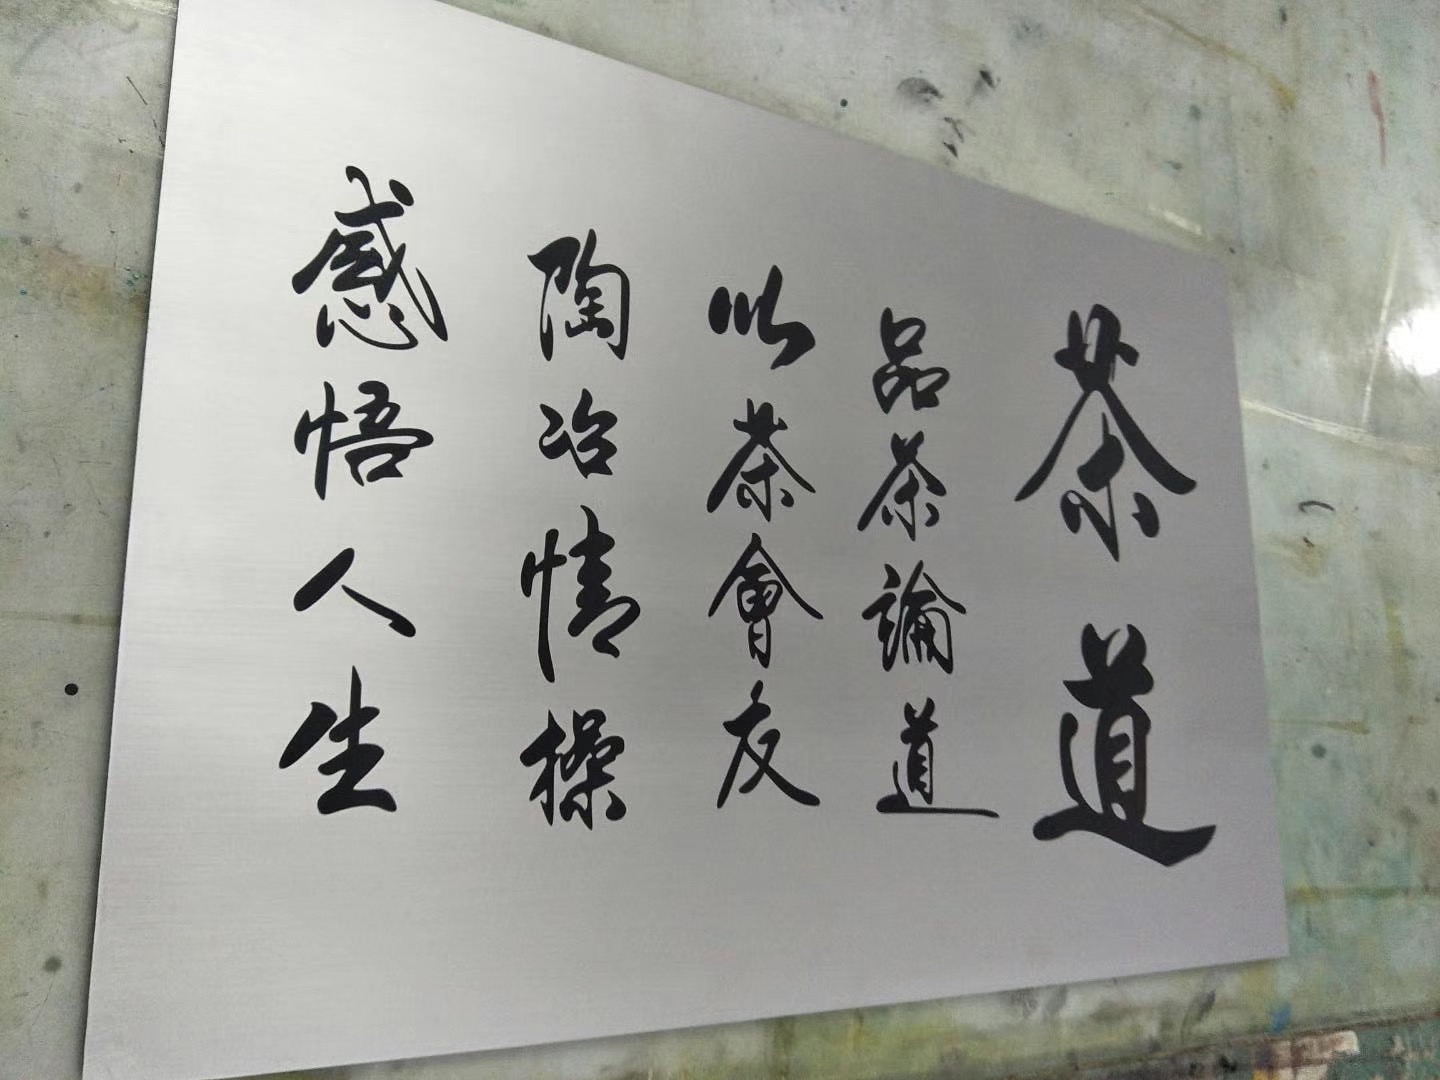 茶道
品茶論道
以茶會友
陶冶情操
感悟人生